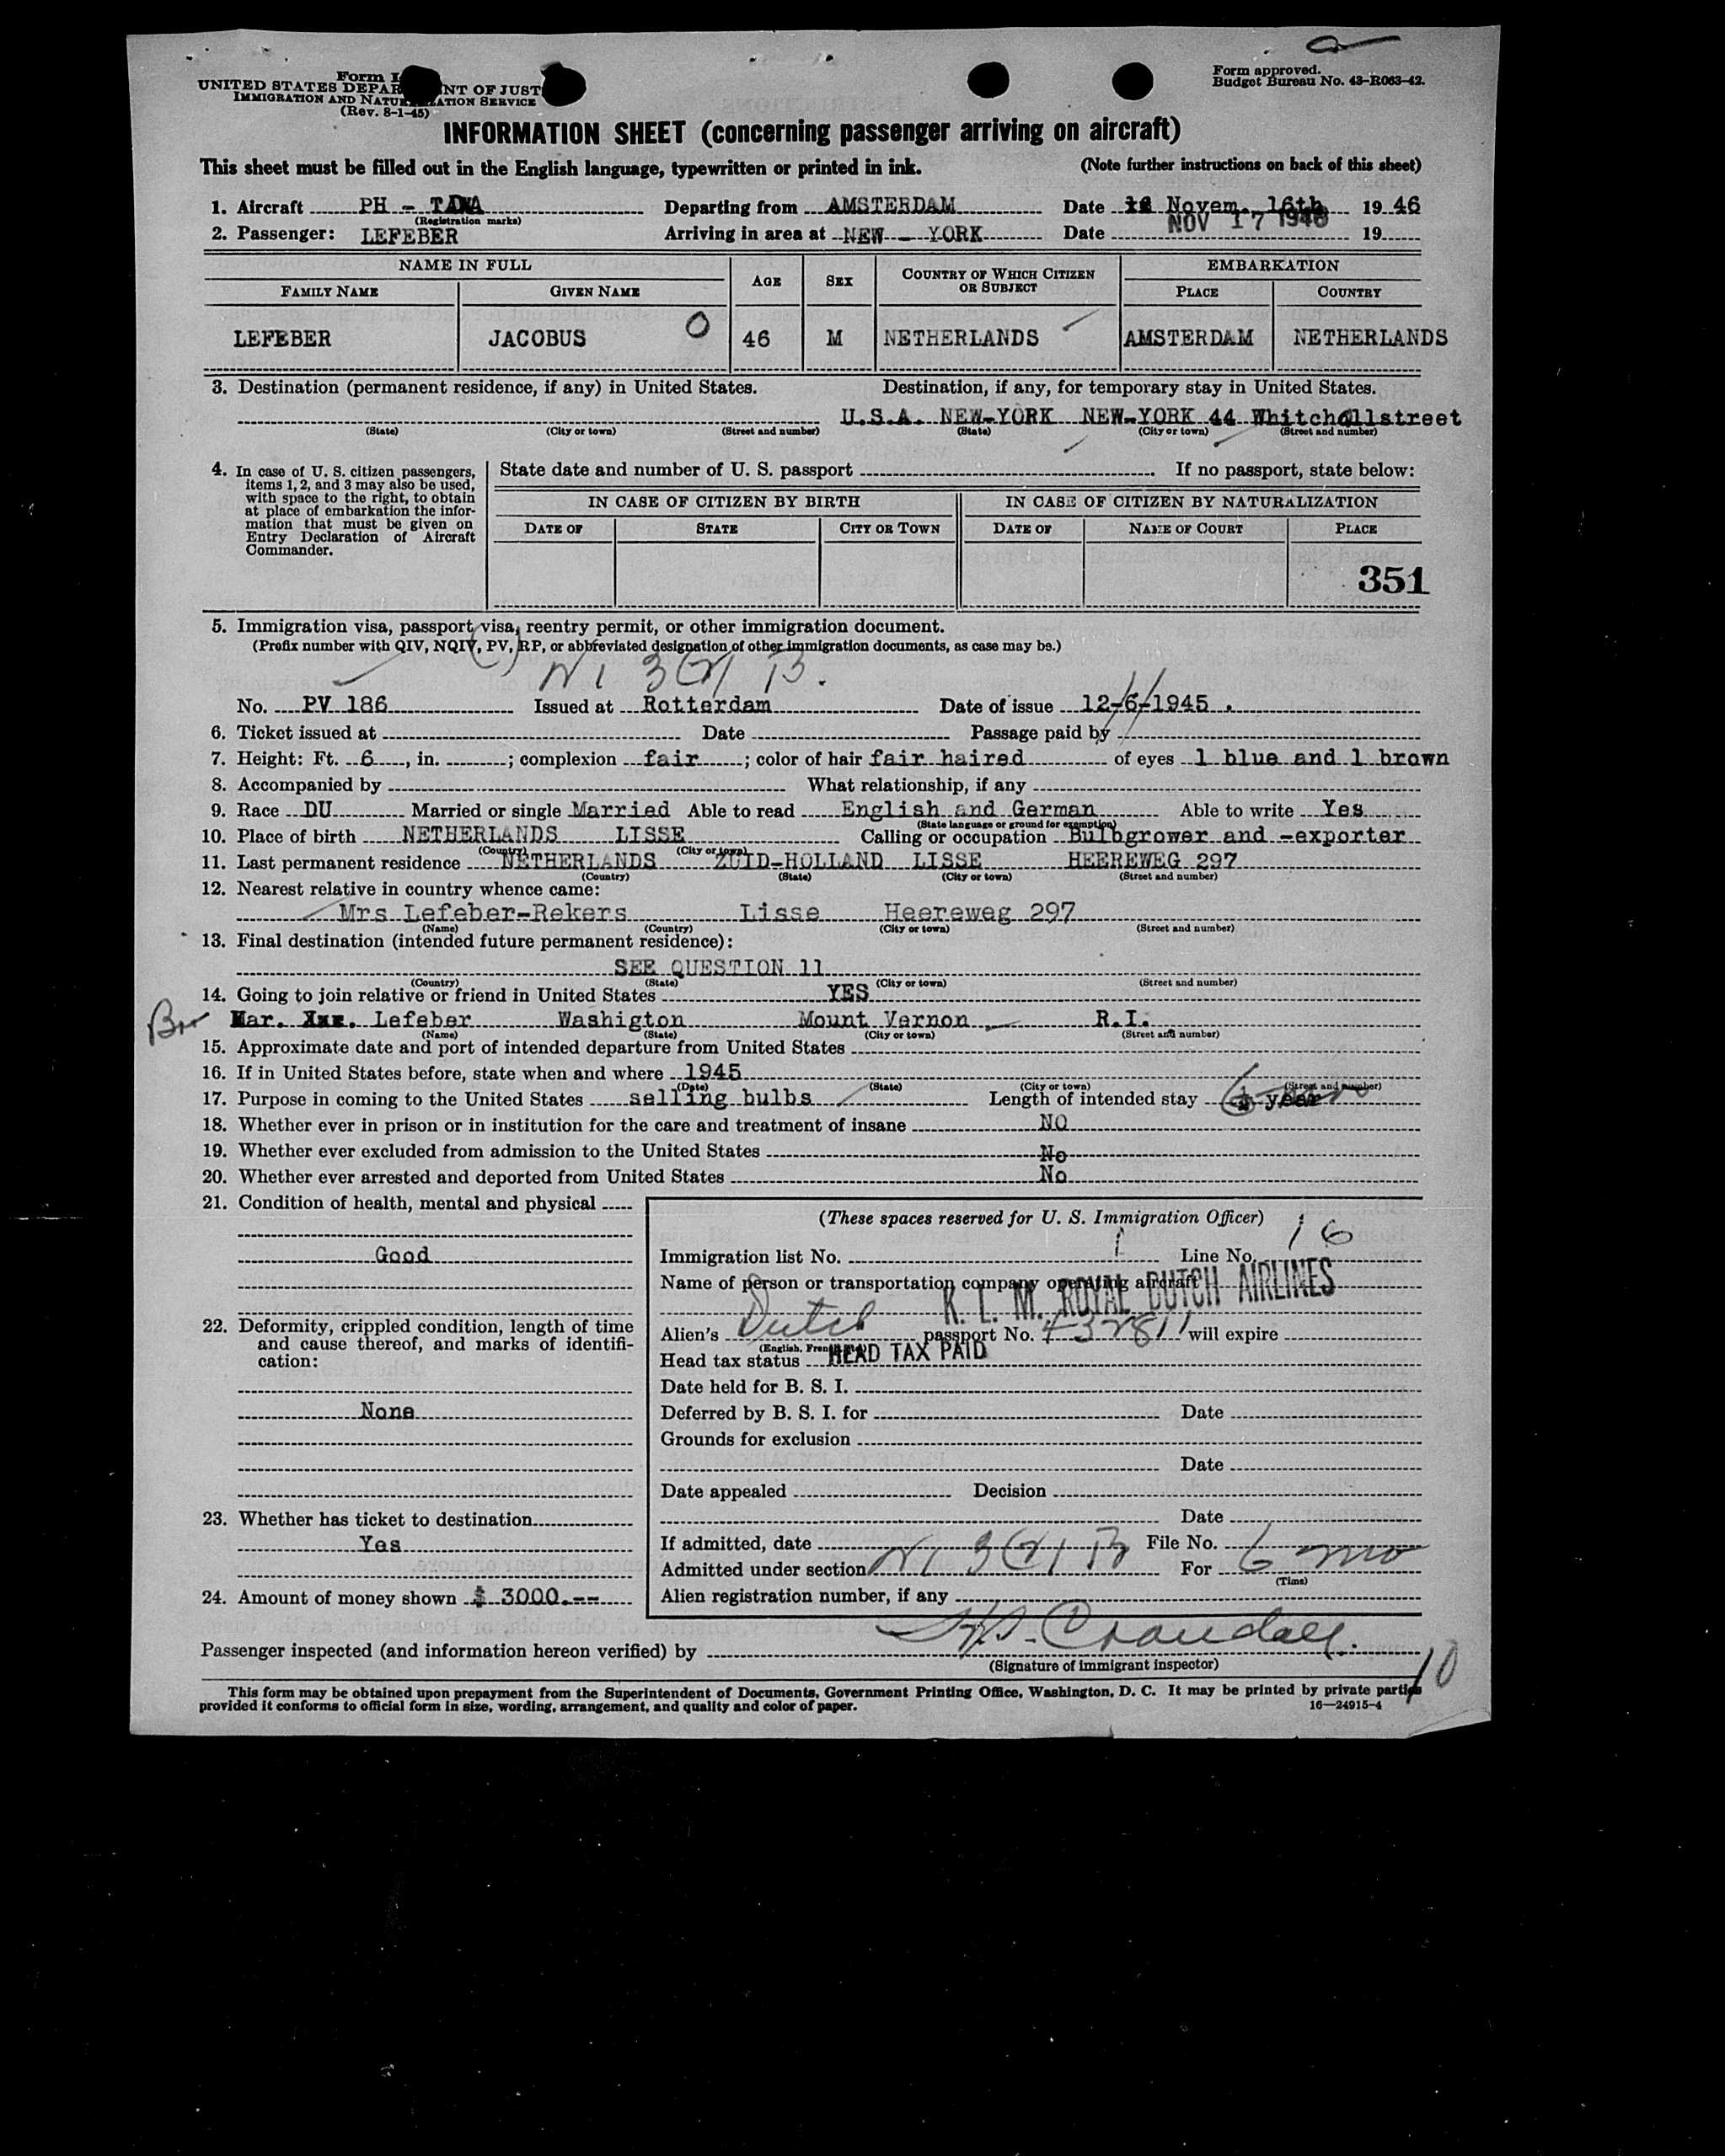 Form I
UNITED STATES DEPAR NT OF JUST
IMMIGRATION AND NATURALIZATION SERVICE
(Rev. 8-1-45)
Form approved.
Budget Bureau No. 43-R063-42.
INFORMATION SHEET (concerning passenger arriving on aircraft)
This sheet must be filled out in the English language, typewritten or printed in ink. (Note further instructions on back of this sheet)
1. Aircraft PH - Departing from AMSTERDAM Date Novem. 16th 19 46
(Registration marks)
2. Passenger: LEFEBER Arriving in area at NEW - YORK Date NOV 17 1946 19
NAME IN FULL AGE SEX COUNTRY OF WHICH CITIZEN OR SUBJECT EMBARKATION
FAMILY NAME GIVEN NAME PLACE COUNTRY
LEFEBER JACOBUS O 46 M NETHERLANDS AMSTERDAM NETHERLANDS
3. Destination (permanent residence, if any) in United States. Destination, if any, for temporary stay in United States.
U.S.A. NEW-YORK NEW-YORK 44 Whitchallstreet
(State) (City or town) (Street and number) (State) (City or town) (Street and number)
4. In case of U. S. citizen passengers, items 1, 2, and 3 may also be used, with space to the right, to obtain at place of embarkation the information that must be given on Entry Declaration of Aircraft Commander.
State date and number of U. S. passport If no passport, state below:
IN CASE OF CITIZEN BY BIRTH IN CASE OF CITIZEN BY NATURALIZATION
DATE OF STATE CITY OR TOWN DATE OF NAME OF COURT PLACE
351
5. Immigration visa, passport visa, reentry permit, or other immigration document.
(Prefix number with QIV, NQIV, PV, RP, or abbreviated designation of other immigration documents, as case may be.)
3(2) B.
No. PV 186 Issued at Rotterdam Date of issue 12-6-1945 .
6. Ticket issued at Date Passage paid by
7. Height: Ft. 6, in. ; complexion fair; color of hair fair haired of eyes 1 blue and 1 brown
8. Accompanied by What relationship, if any
9. Race DU Married or single Married Able to read English and German Able to write Yes
(State language or ground for exemption)
10. Place of birth NETHERLANDS LISSE Calling or occupation Bulbgrower and -exporter
(Country) (City or town)
11. Last permanent residence NETHERLANDS ZUID-HOLLAND LISSE HEEREWEG 297
(Country) (State) (City or town) (Street and number)
12. Nearest relative in country whence came:
Mrs Lefeber-Rekers Lisse Heereweg 297
(Name) (Country) (City or town) (Street and number)
13. Final destination (intended future permanent residence):
SEE QUESTION 11
(Country) (State) (City or town) (Street and number)
14. Going to join relative or friend in United States YES
Mar. Lefeber Washigton Mount Vernon R.I.
(Name) (State) (City or town) (Street and number)
15. Approximate date and port of intended departure from United States
16. If in United States before, state when and where 1945
(Date) (State) (City or town) (Street and number)
17. Purpose in coming to the United States selling bulbs Length of intended stay ½ year
18. Whether ever in prison or in institution for the care and treatment of insane NO
19. Whether ever excluded from admission to the United States No
20. Whether ever arrested and deported from United States No
21. Condition of health, mental and physical
Good
22. Deformity, crippled condition, length of time and cause thereof, and marks of identification:
None
23. Whether has ticket to destination
Yes
24. Amount of money shown $ 3000.--
(These spaces reserved for U. S. Immigration Officer)
Immigration list No. 1 Line No. 16
Name of person or transportation company operating aircraft
K. L. M. ROYAL DUTCH AIRLINES
Alien's Dutch passport No. 432811 will expire
(English, French, etc.)
Head tax status HEAD TAX PAID
Date held for B. S. I.
Deferred by B. S. I. for Date
Grounds for exclusion
Date
Date appealed Decision
Date
If admitted, date File No.
Admitted under section 3(2) B For 6 mo
(Time)
Alien registration number, if any
Passenger inspected (and information hereon verified) by Crandall.
(Signature of immigrant inspector)
10
This form may be obtained upon prepayment from the Superintendent of Documents, Government Printing Office, Washington, D. C. It may be printed by private parties
provided it conforms to official form in size, wording, arrangement, and quality and color of paper. 16—24915-4